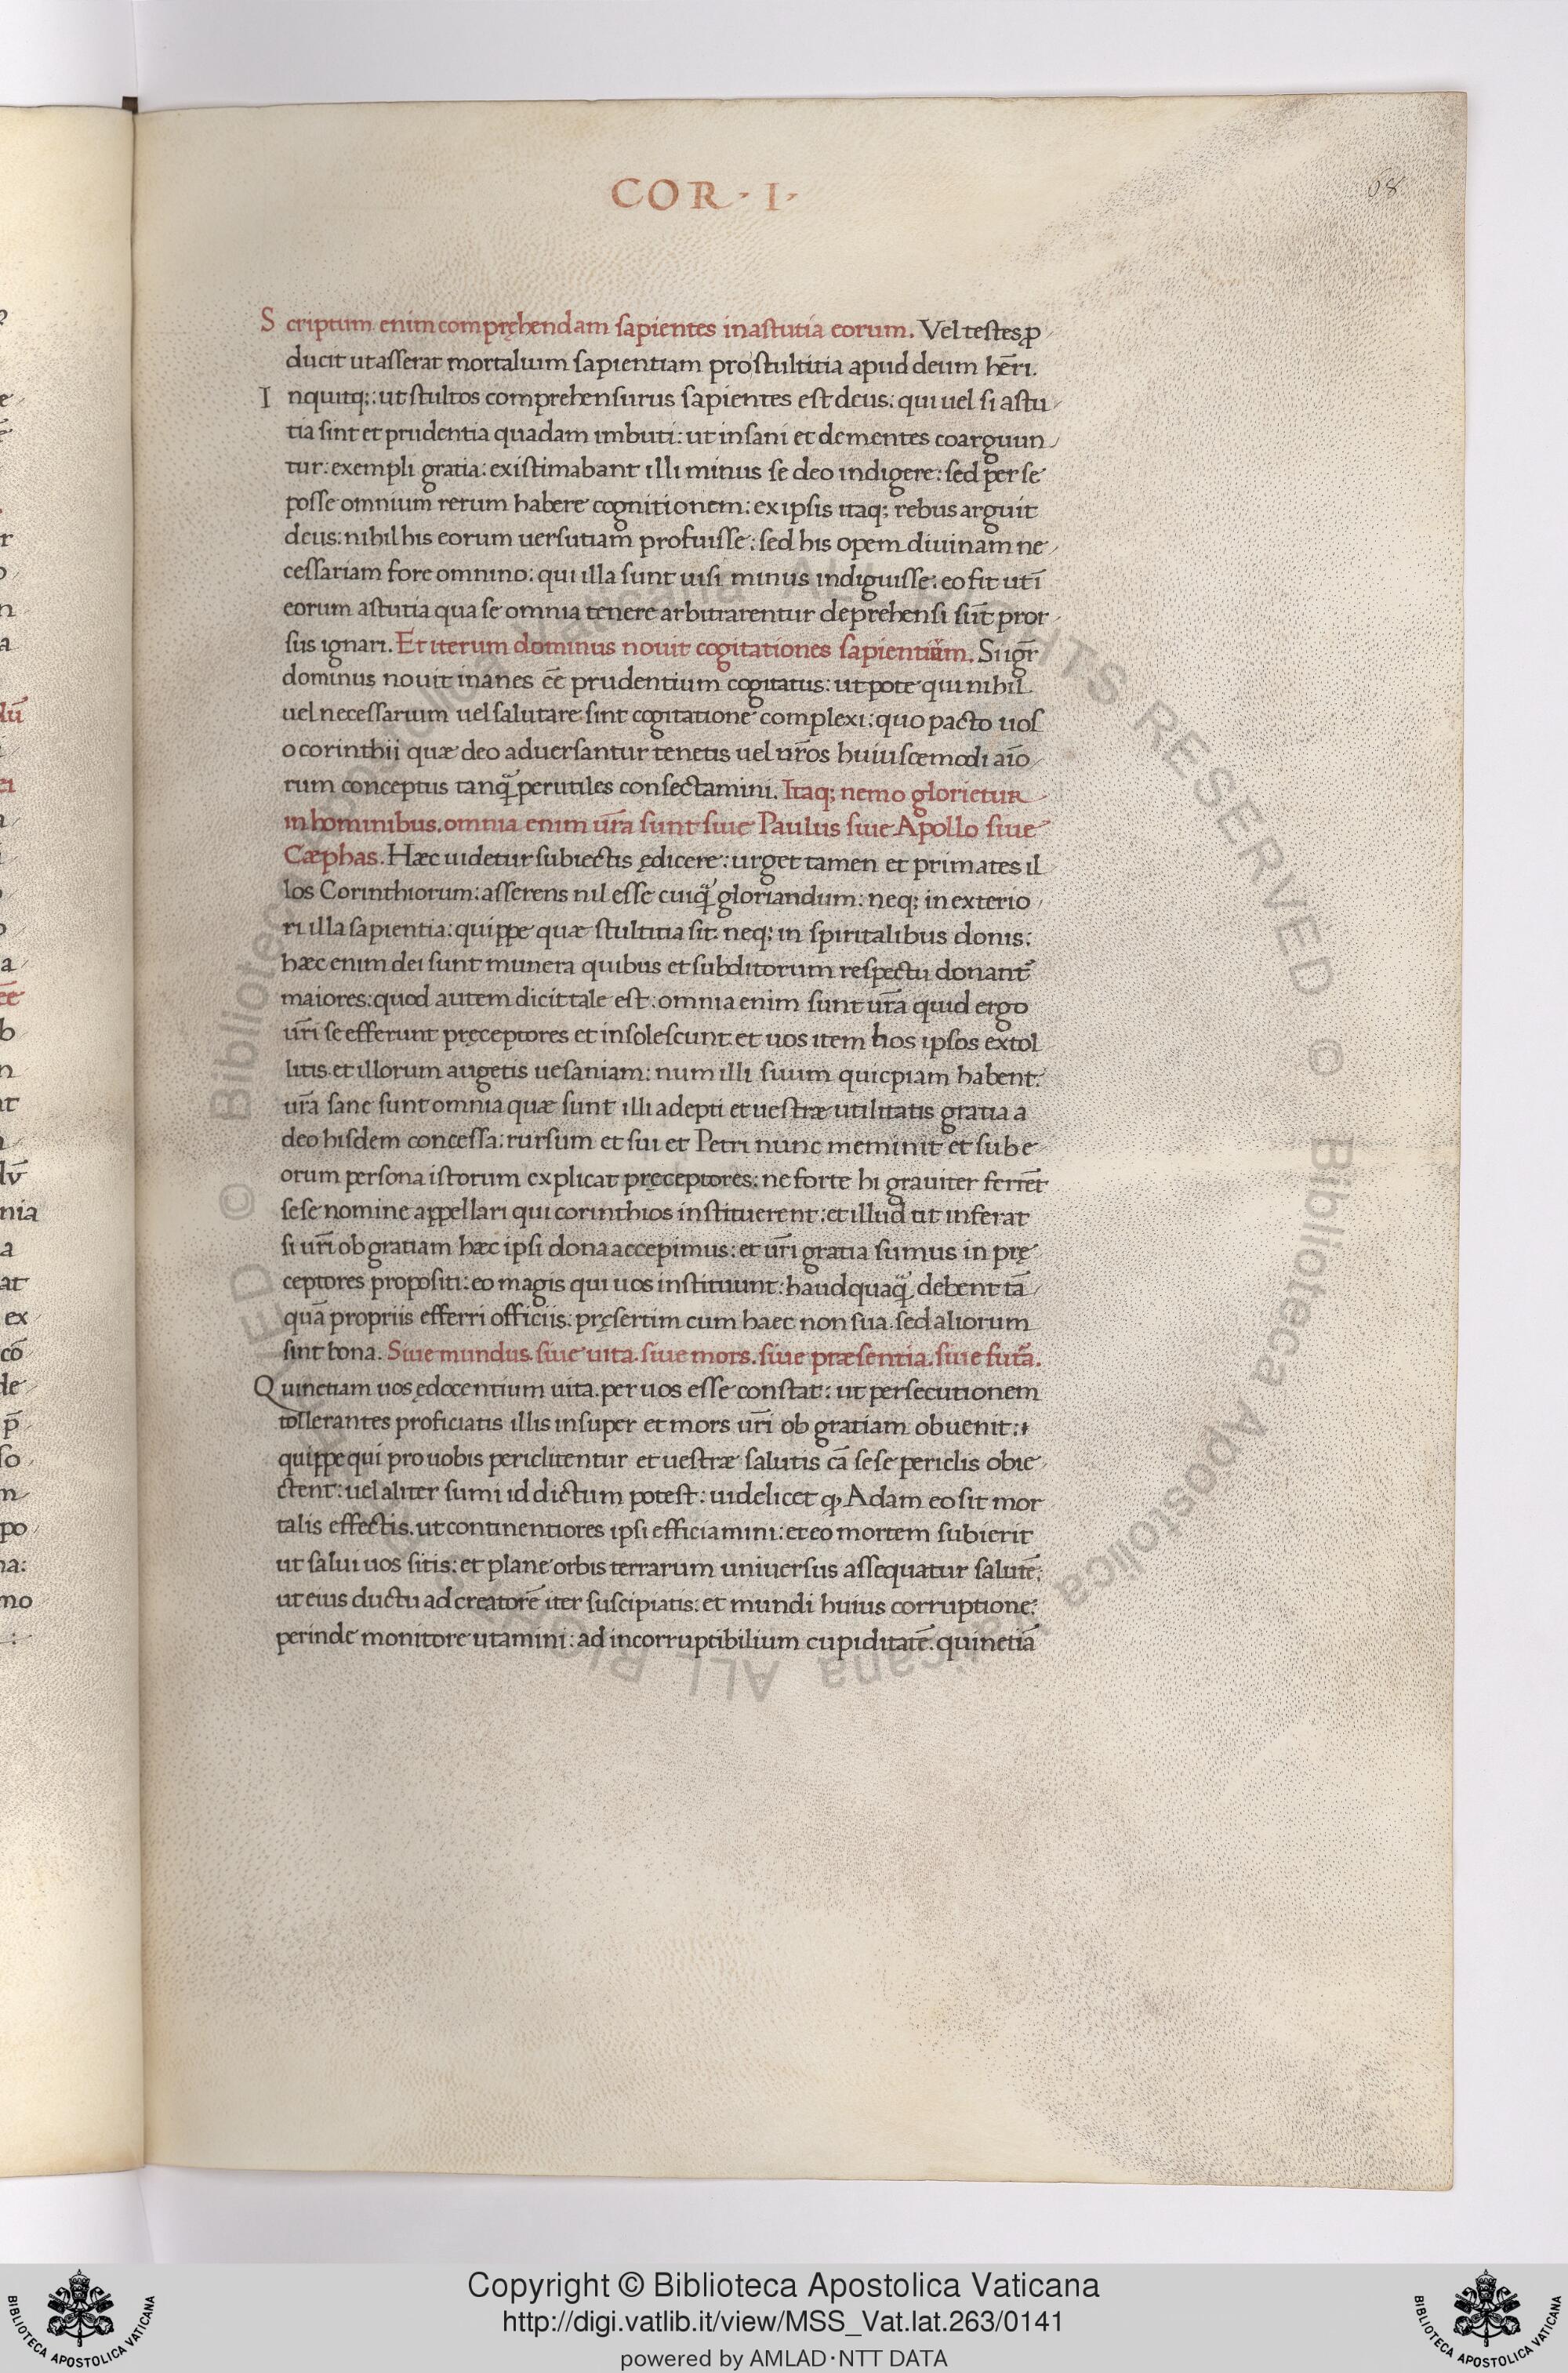 COR · I ·
68
Scriptum enim compręhendam sapientes in astutia eorum. Vel testes ꝓ
ducit ut asserat mortalium sapientiam pro stultitia apud deum hēri.
Inquitq;: ut stultos comprehensurus sapientes est deus: qui uel si astu
tia sint et prudentia quadam imbuti: ut insani et dementes coarguun
tur: exempli gratia: existimabant illi minus se deo indigere: sed per se
posse omnium rerum habere cognitionem: ex ipsis itaq; rebus arguit
deus: nihil his eorum uersutiam profuisse: sed his opem diuinam ne
cessariam fore omnino: qui illa sunt uisi minus indiguisse: eo fit ut ī
eorum astutia qua se omnia tenere arbitrarentur deprehensi sūt pror
sus ignari. Et iterum dominus nouit cogitationes sapientium. Si igr̄
dominus nouit inanes eē prudentium cogitatus: ut pote qui nihil
uel necessarium uel salutare sint cogitatione complexi: quo pacto uos
o corinthii quæ deo aduersantur tenetis uel ur̄os huiuscemodi aīo
rum conceptus tanq̃ perutiles consectamini. Itaq; nemo glorietur
in hominibus. omnia enim ur̄a sunt siue Paulus siue Apollo siue
Cæphas. Hæc uidetur subiectis ędicere: urget tamen et primates il
los Corinthiorum: asserens nil esse cuiq̃ gloriandum: neq; in exterio
ri illa sapientia: quippe quæ stultitia sit: neq; in spiritalibus donis:
hæc enim dei sunt munera quibus et subditorum respectu donant̄
maiores: quod autem dicit tale est: omnia enim sunt ur̄a quid ergo
ur̄i se efferunt pręceptores et insolescunt: et uos item hos ipsos extol
litis et illorum augetis uesaniam: num illi suum quicpiam habent:
ur̄a sane sunt omnia quæ sunt illi adepti et uestræ utilitatis gratia a
deo hisdem concessa: rursum et sui et Petri nunc meminit et sub e
orum persona istorum explicat pręceptores: ne forte hi grauiter ferrēt
sese nomine appellari qui corinthios instituerent: et illud ut inferat
si ur̄i ob gratiam hæc ipsi dona accepimus: et ur̄i gratia sumus in prę
ceptores propositi: eo magis qui uos instituunt: haudquaq̃ debent tā
quā propriis efferri officiis: pręsertim cum haec non sua sed aliorum
sint bona. Siue mundus. siue uita. siue mors. siue præsentia. siue futr̄a.
Quinetiam uos ędocentium uita. per uos esse constat: ut persecutionem
tollerantes proficiatis illis insuper et mors ur̄i ob gratiam obuenit:
quippe qui pro uobis periclitentur et uestræ salutis cā sese periclis obie
ctent: uel aliter sumi id dictum potest: uidelicet q, Adam eo sit mor
talis effectis. ut continentiores ipsi efficiamini: et eo mortem subierit
ut salui uos sitis: et plane orbis terrarum uniuersus assequatur salutē:
ut eius ductu ad creatorē iter suscipiatis: et mundi huius corruptione:
perinde monitore utamini: ad incorruptibilium cupiditatē. quinetiā
Copyright © Biblioteca Apostolica Vaticana
http://digi.vatlib.it/view/MSS_Vat.lat.263/0141
powered by AMLAD·NTT DATA